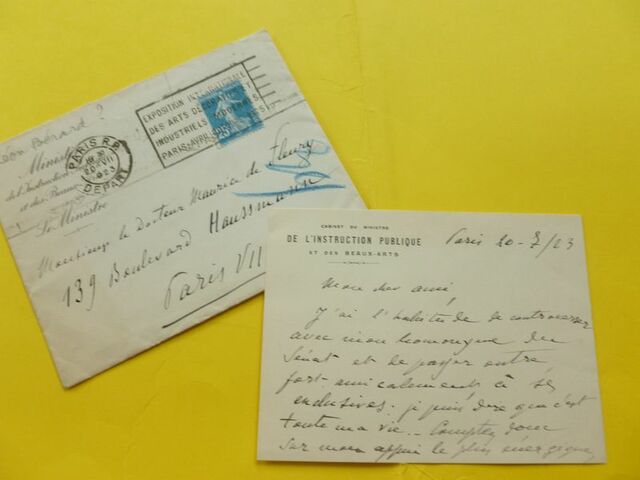 Léon Bérard ?
Ministère
de l'Instruction
et des Beaux
Le Ministre
PARIS R.P.
20 VII
923
DÉPART
EXPOSITION INTERNATIONALE
DES ARTS DÉCORATIFS ET
INDUSTRIELS MODERNES
PARIS-AVRIL
25
Monsieur le Docteur Maurice de Fleury
139 Boulevard Haussmann
Paris VIII
CABINET DU MINISTRE
DE L'INSTRUCTION PUBLIQUE
ET DES BEAUX-ARTS
Paris 20-7/23
Mon cher ami,
J'ai l'habitude de controverser
avec mon homonyme du
Sénat et de passer outre,
fort amicalement à ses
exclusives. je puis dire que c'est
toute ma vie.. Comptez donc
sur mon appui le plus énergique